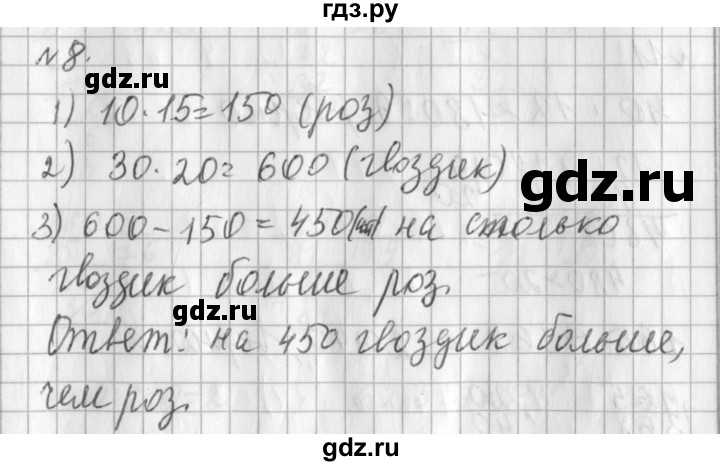 гдз.ру
№8.
gdz.ru
1) 10·15=150 (роз)
2) 30·20= 600 (гвоздик)
gdz.ru
3) 600-150=450(шт) на столько
гвоздик больше роз.
gdz.ru
Ответ: на 450 гвоздик больше,
чем роз.
gdz.ru
gdz.ru